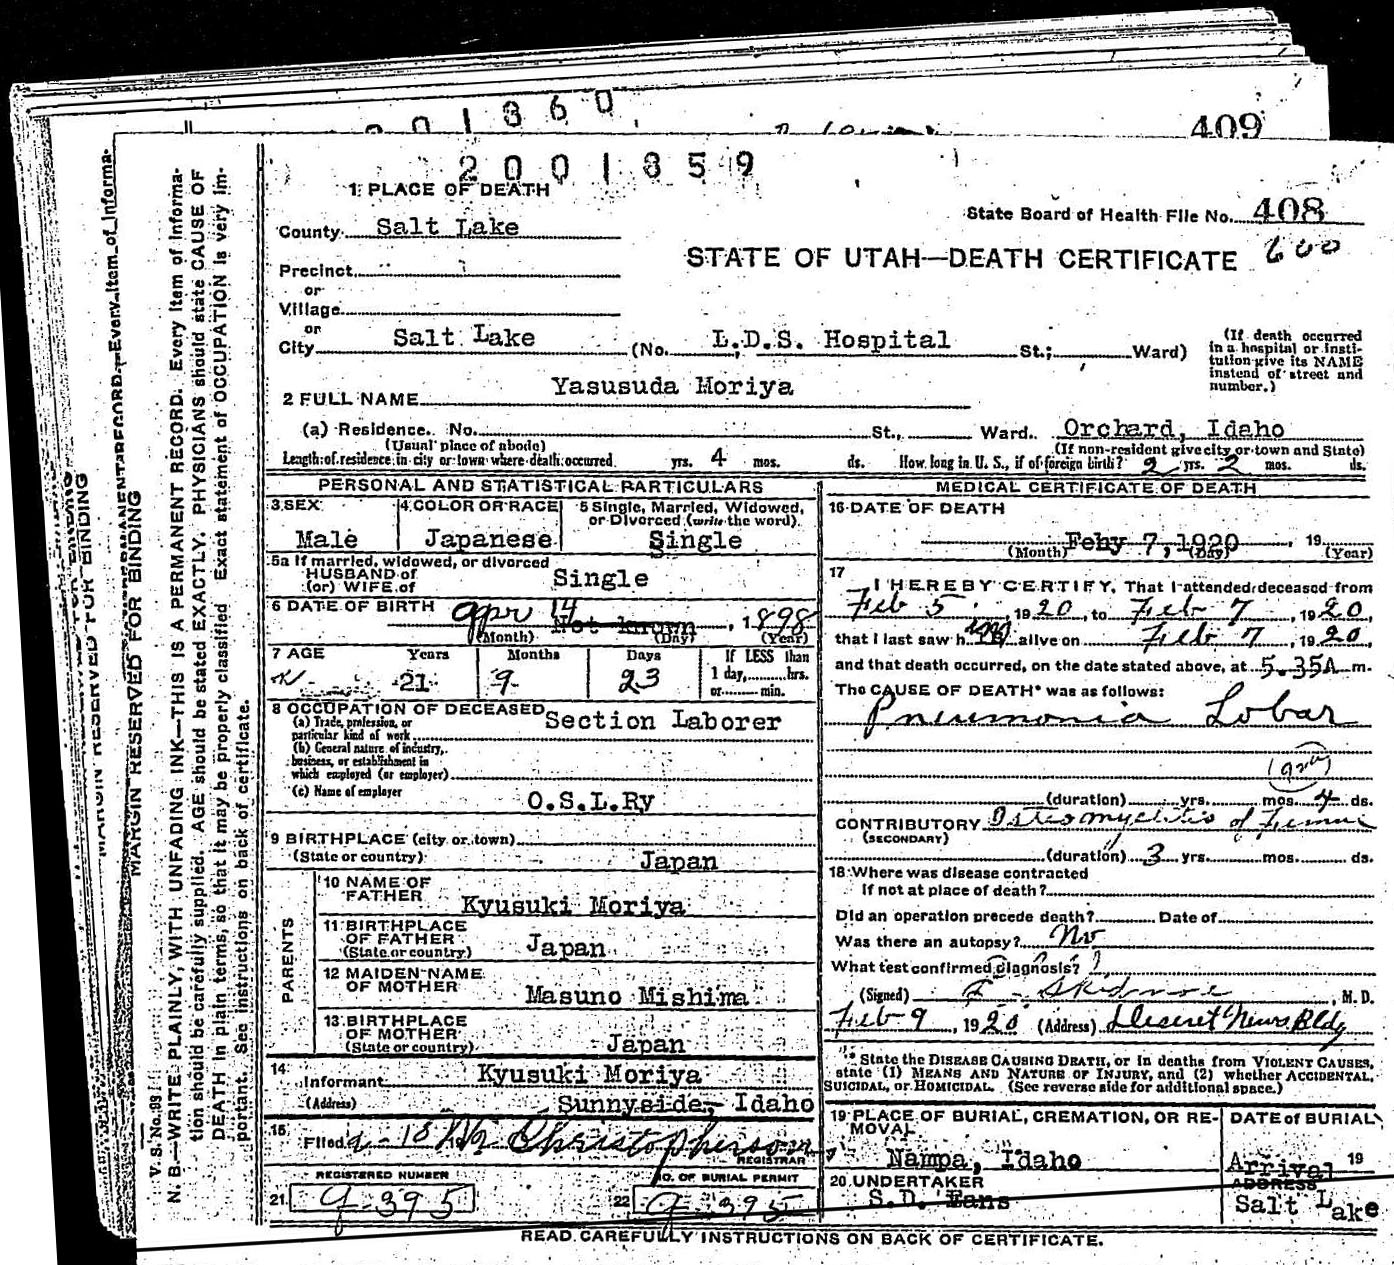 2001860
409
2001859
1 PLACE OF DEATH
State Board of Health File No. 408
County Salt Lake
STATE OF UTAH—DEATH CERTIFICATE 600
Precinct
or
Village
or
City Salt Lake (No. L.D.S. Hospital St.; Ward)
(If death occurred in a hospital or institution give its NAME instead of street and number.)
2 FULL NAME Yasusuda Moriya
(a) Residence. No. St., Ward. Orchard, Idaho
(Usual place of abode) (If non-resident give city or town and State)
Length of residence in city or town where death occurred yrs. 4 mos. ds. How long in U. S., if of foreign birth? 2 yrs. 2 mos. ds.
PERSONAL AND STATISTICAL PARTICULARS
3 SEX
Male
4 COLOR OR RACE
Japanese
5 Single, Married, Widowed, or Divorced (write the word)
Single
5a If married, widowed, or divorced
HUSBAND of
(or) WIFE of Single
6 DATE OF BIRTH Apr 14 Not known, 1898
(Month) (Day) (Year)
7 AGE Years Months Days If LESS than
21 9 23 1 day, hrs.
or min.
8 OCCUPATION OF DECEASED
(a) Trade, profession, or particular kind of work Section Laborer
(b) General nature of industry, business, or establishment in which employed (or employer)
(c) Name of employer O.S.L.Ry
9 BIRTHPLACE (city or town)
(State or country) Japan
PARENTS
10 NAME OF FATHER Kyusuki Moriya
11 BIRTHPLACE OF FATHER (State or country) Japan
12 MAIDEN NAME OF MOTHER Masuno Mishima
13 BIRTHPLACE OF MOTHER (State or country) Japan
14 Informant Kyusuki Moriya
(Address) Sunnyside, Idaho
15 Filed 2-18 Christopherson
REGISTRAR
REGISTERED NUMBER
21 G 395
NO. OF BURIAL PERMIT
22 G 395
MEDICAL CERTIFICATE OF DEATH
16 DATE OF DEATH
Feby 7, 1920, 19
(Month) (Day) (Year)
17
I HEREBY CERTIFY, That I attended deceased from
Feb 5, 1920, to Feb 7, 1920,
that I last saw him alive on Feb 7, 1920,
and that death occurred, on the date stated above, at 5.35A m.
The CAUSE OF DEATH* was as follows:
Pneumonia Lobar
(92a)
(duration) yrs. mos. 4 ds.
CONTRIBUTORY Osteomyelitis of Femur
(SECONDARY)
(duration) 3 yrs. mos. ds.
18 Where was disease contracted
If not at place of death?
Did an operation precede death? Date of
Was there an autopsy? No
What test confirmed diagnosis?
(Signed) Skidmore, M. D.
Feb 9, 1920 (Address) Deseret News Bldg
* State the DISEASE CAUSING DEATH, or in deaths from VIOLENT CAUSES, state (1) MEANS AND NATURE OF INJURY, and (2) whether ACCIDENTAL, SUICIDAL, or HOMICIDAL. (See reverse side for additional space.)
19 PLACE OF BURIAL, CREMATION, OR REMOVAL
Nampa, Idaho
DATE OF BURIAL
Arrival 19
20 UNDERTAKER
S.D. Eans
ADDRESS
Salt Lake
READ CAREFULLY INSTRUCTIONS ON BACK OF CERTIFICATE.
MARGIN RESERVED FOR BINDING
V. S. No. 93
N. B.—WRITE PLAINLY, WITH UNFADING INK—THIS IS A PERMANENT RECORD. Every item of information should be carefully supplied. AGE should be stated EXACTLY. PHYSICIANS should state CAUSE OF DEATH in plain terms, so that it may be properly classified. Exact statement of OCCUPATION is very important. See instructions on back of certificate.